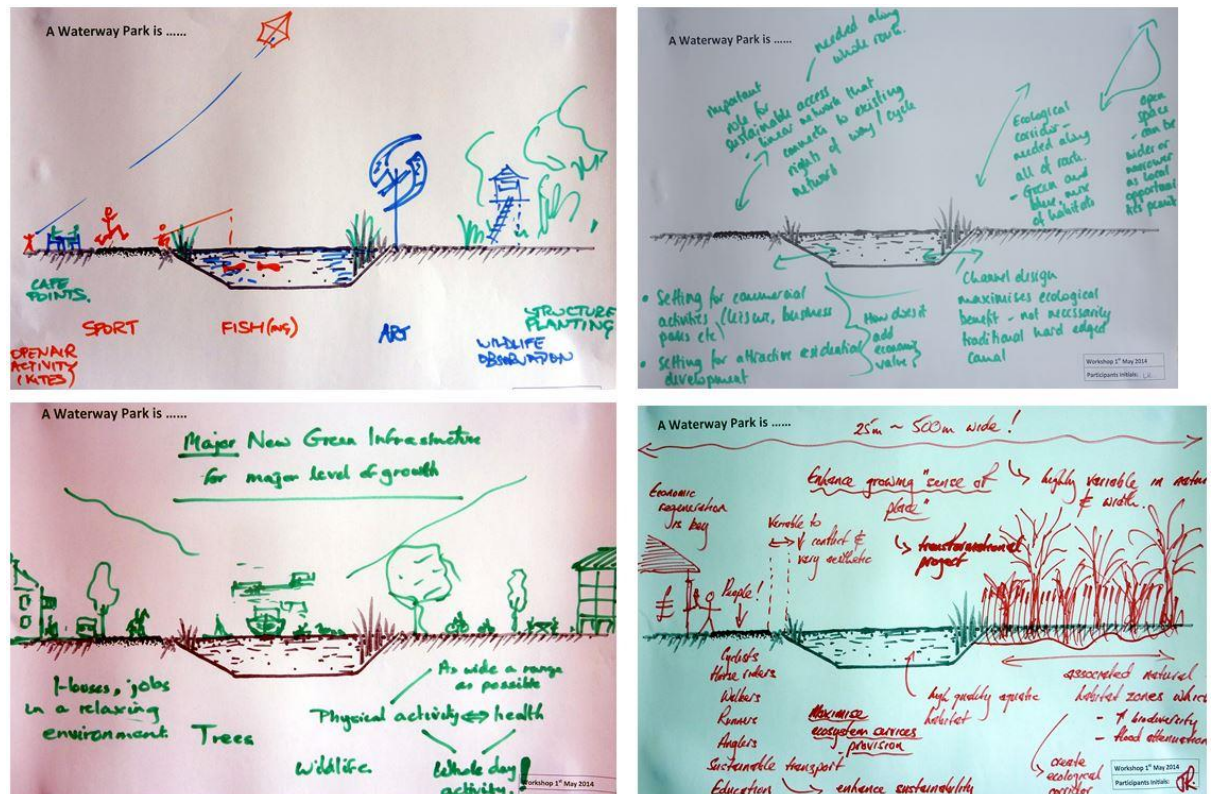 A Waterway Park is ......
CAFE
POINTS.
SPORT
FISH(ING)
ART
STRUCTURE
PLANTING
WILDLIFE
OBSERVATION
OPENAIR
ACTIVITY
(KITES)
A Waterway Park is ......
needed along
whole route.
important
role for
sustainable access
- linear network that
connects to existing
rights of way / cycle
network
Ecological
corridor -
needed along
all of route.
- Green and
blue, mix
of habitats
open
space
- can be
wider or
narrower
as local
opportuni
ties permit
• Setting for commercial
activities (leisure, business
parks etc)
• Setting for attractive residential
development
How does it
add
economic
value?
Channel design
maximises ecological
benefit - not necessarily
traditional hard edged
canal
Workshop 1st May 2014
Participants Initials:
A Waterway Park is ......
Major New Green Infrastructure
for major level of growth
Houses, jobs
in a relaxing
environment
Trees
As wide a range
as possible
Physical activity ⇔ health
Wildlife
Whole day
activity.!
Workshop 1st May 2014
A Waterway Park is ......
25m ~ 500m wide!
Enhance growing "sense of
place"
highly variable in nature
& width.
Economic
regeneration
is key
Variable to
↓ conflict &
very aesthetic
transformational
project
People!
Cyclists
Horse riders
Walkers
Runners
Anglers
Sustainable transport
Education
enhance sustainability
Maximise
ecosystem services
provision
high quality aquatic
habitat
associated natural
habitat zones which
- ↑ biodiversity
- flood attenuation
create
ecological
corridor
Workshop 1st May 2014
Participants Initials: